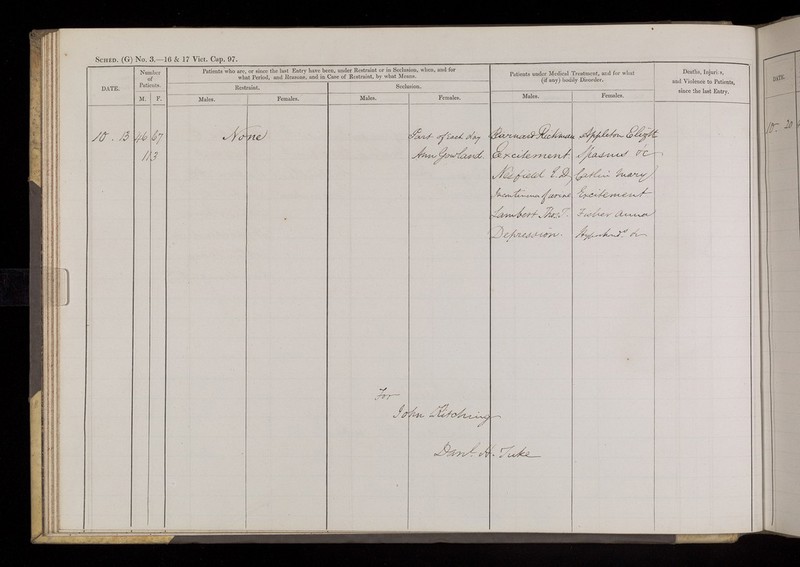 SCHED. (G) No. 3.—16 & 17 Vict. Cap. 97.
DATE.
Number of Patients.
M. F.
Patients who are, or since the last Entry have been, under Restraint or in Seclusion, when, and for
what Period, and Reasons, and in Case of Restraint, by what Means.
Restraint.
Seclusion.
Males. Females. Males. Females.
Patients under Medical Treatment, and for what
(if any) bodily Disorder.
Males. Females.
Deaths, Injuries,
and Violence to Patients,
since the last Entry.
DATE.
10 . 13 46 67 None Part of each day Burnard Rickman Appleton
113 Ann Gowland. Excitement Spasms &c
E. D. Mary
Incontinence of urine Excitement
Lambert Thos. T. Fisher Anna
Depression. &c
10 - 20
For
John Kitching
Danl. H. Tuke